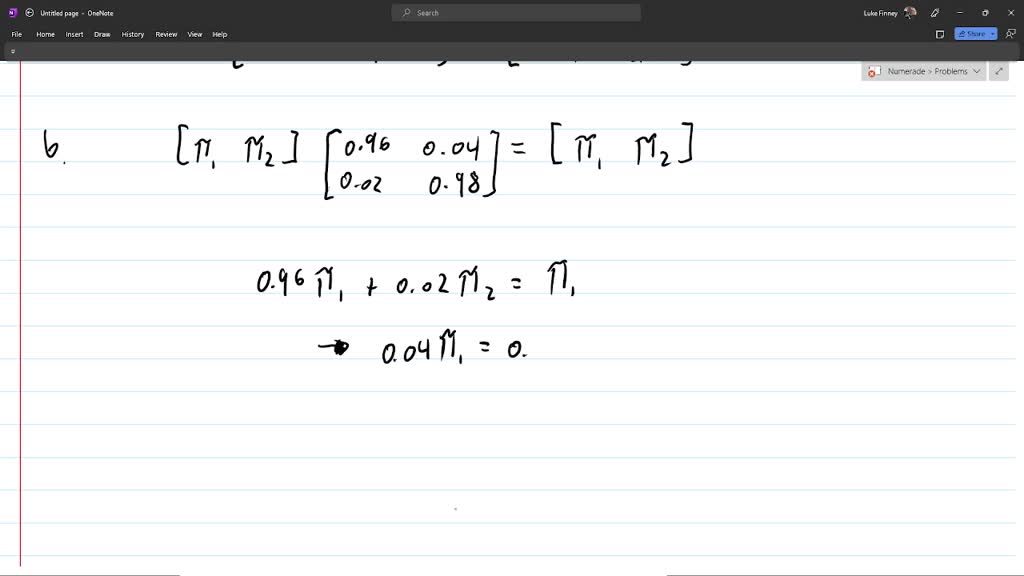 Untitled page - OneNote
Search
Luke Finney
File Home Insert Draw History Review View Help
Share
Numerade > Problems
b. [π₁ π₂] [0.96 0.04 = [π₁ π₂]
0.02 0.98]
0.96 π₁ + 0.02 π₂ = π₁
→ 0.04 π₁ = 0.